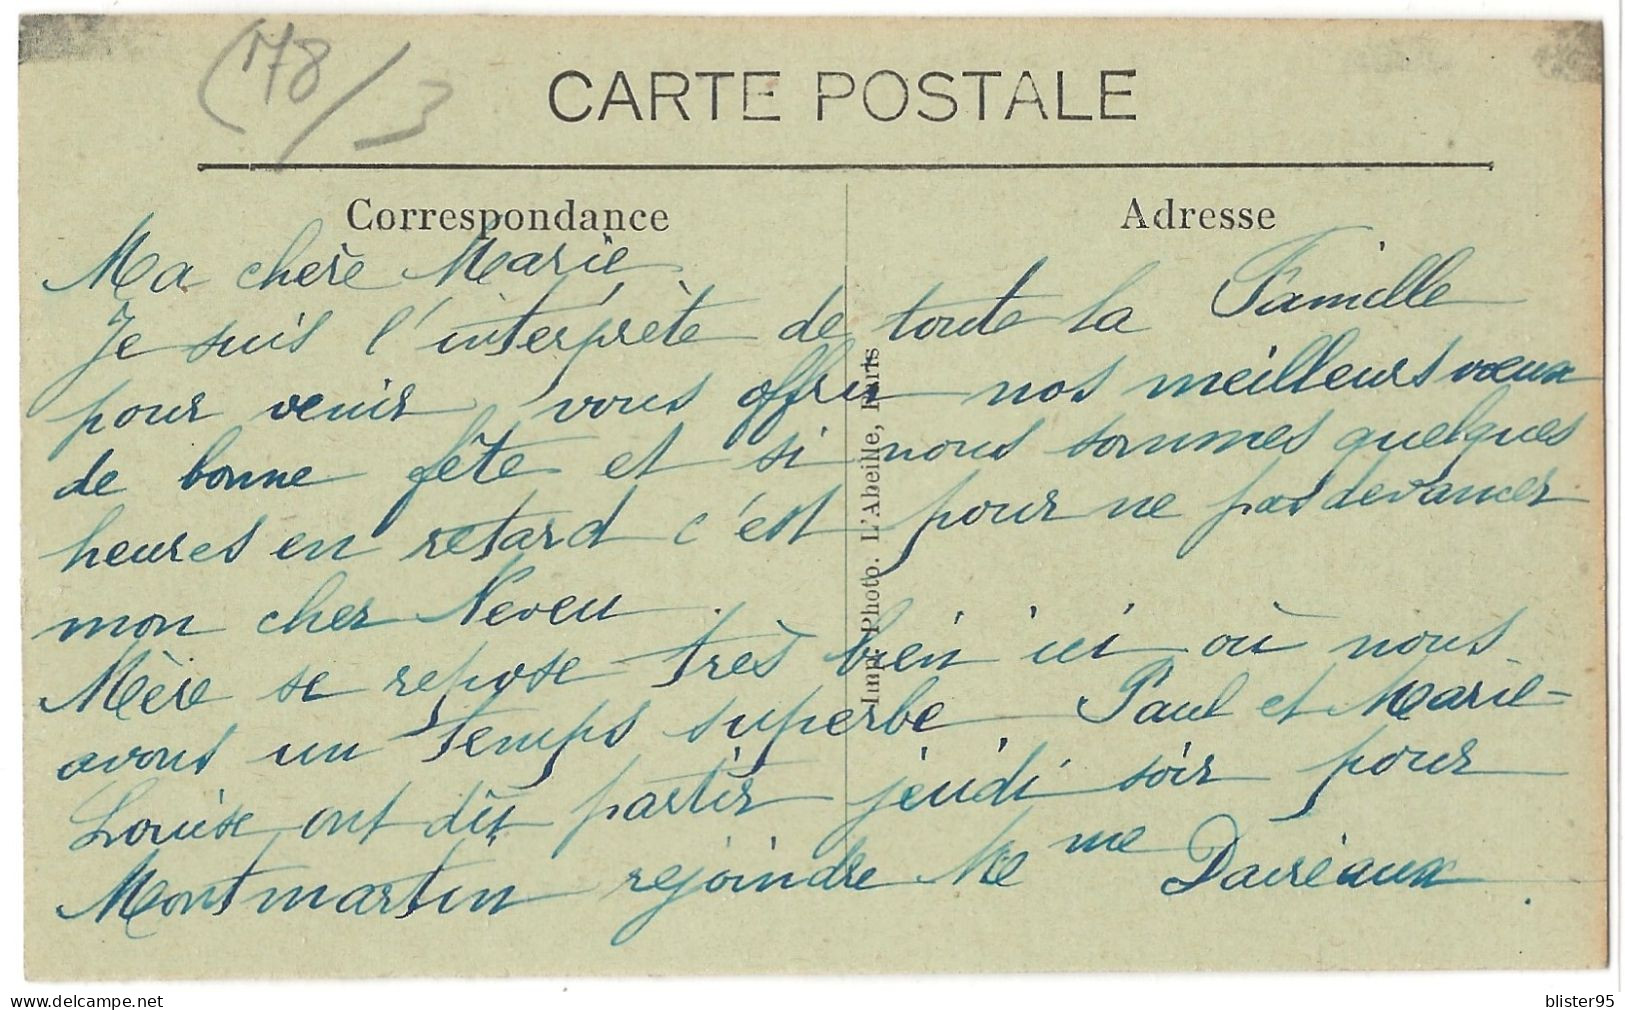 (78/3
CARTE POSTALE
Correspondance
Adresse
Ma chère Marie
Je suis l'interprète de toute la Famille
pour venir vous offrir nos meilleurs vœux
de bonne fête et si nous sommes quelques
heures en retard c'est pour ne pas devancer
mon cher Neveu.
Mère se repose très bien ici où nous
avons un temps superbe Paul et Marie=
Louise ont dû partir jeudi soir pour
Montmartin rejoindre Mme Dauréaux.
Imp. Photo. L'Abeille, Paris
delcampe.net
blister95